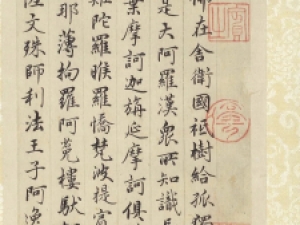 佛在舍衛國祇樹給孤獨
是大阿羅漢眾所知識長
葉摩訶迦旃延摩訶俱
難陀羅睺羅憍梵波提賓
耶薄拘羅阿㝹樓馱如
陸文殊師利法王子阿逸